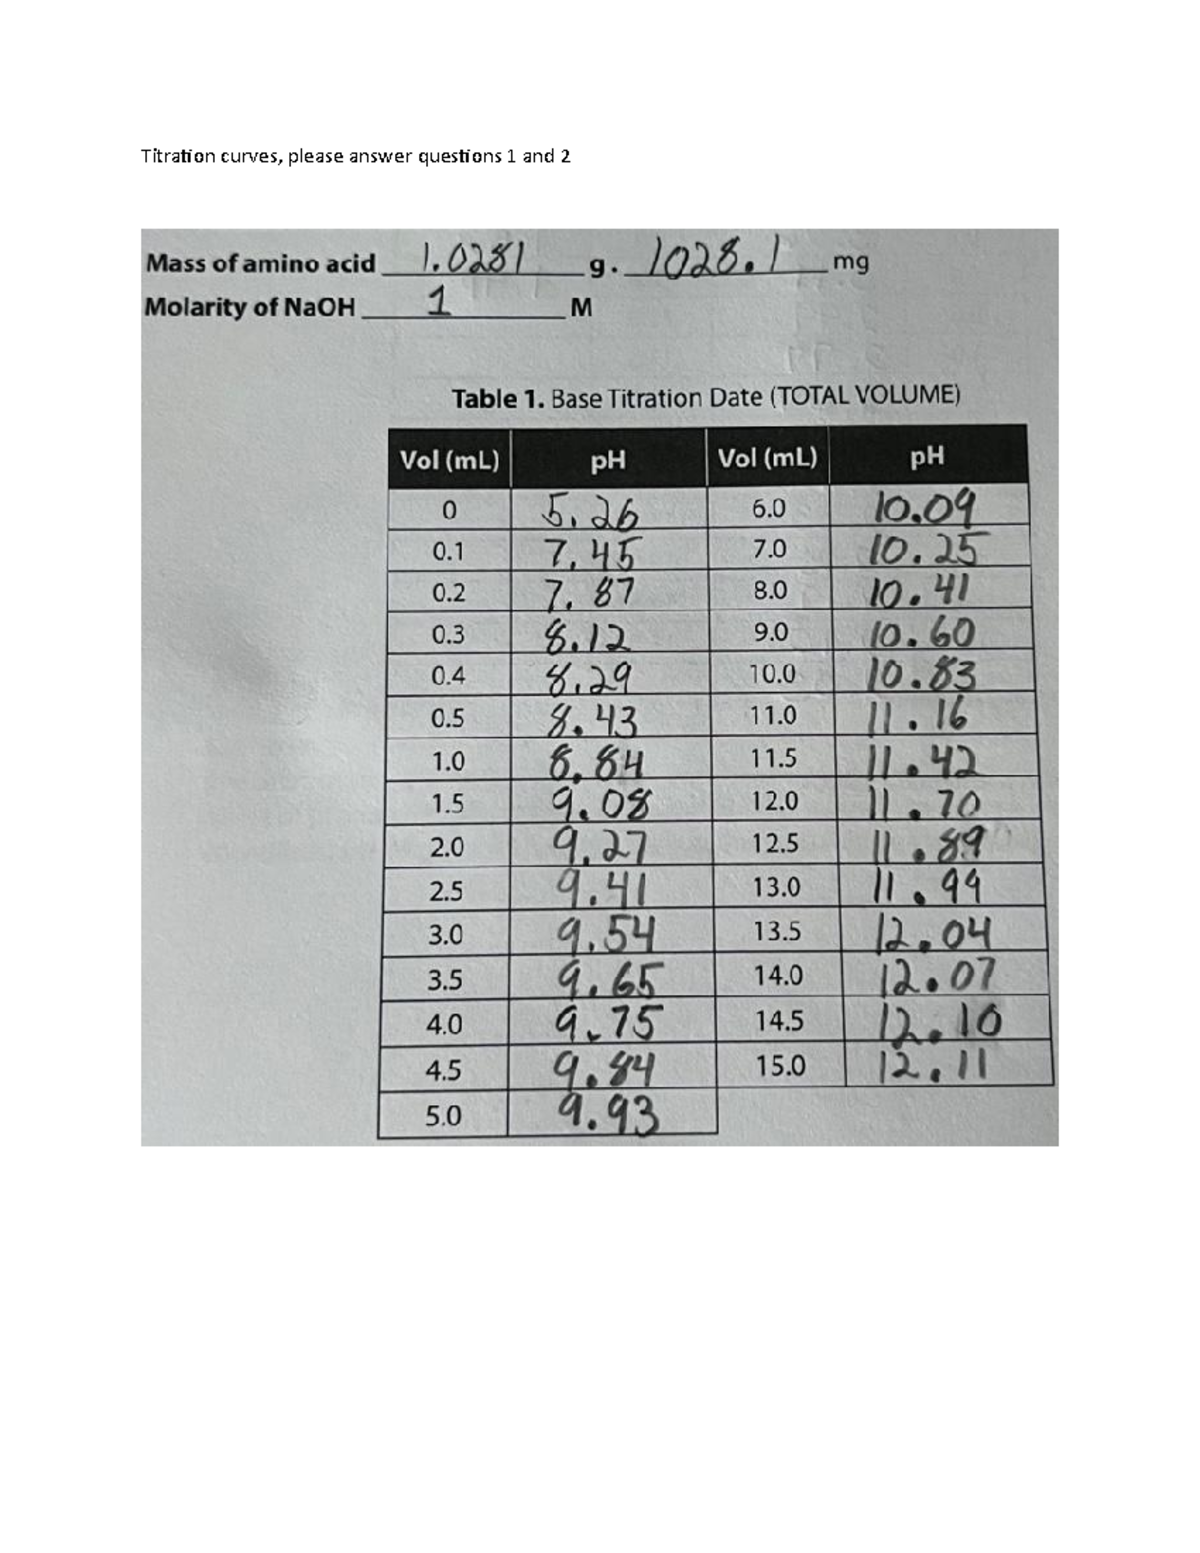 Titration curves, please answer questions 1 and 2
Mass of amino acid 1.0281 g. 1028.1 mg
Molarity of NaOH 1 M
Table 1. Base Titration Date (TOTAL VOLUME)
Vol (mL) pH Vol (mL) pH
0 5.26 6.0 10.09
0.1 7.45 7.0 10.25
0.2 7.87 8.0 10.41
0.3 8.12 9.0 10.60
0.4 8.29 10.0 10.83
0.5 8.43 11.0 11.16
1.0 8.84 11.5 11.42
1.5 9.08 12.0 11.70
2.0 9.27 12.5 11.89
2.5 9.41 13.0 11.99
3.0 9.54 13.5 12.04
3.5 9.65 14.0 12.07
4.0 9.75 14.5 12.10
4.5 9.84 15.0 12.11
5.0 9.93